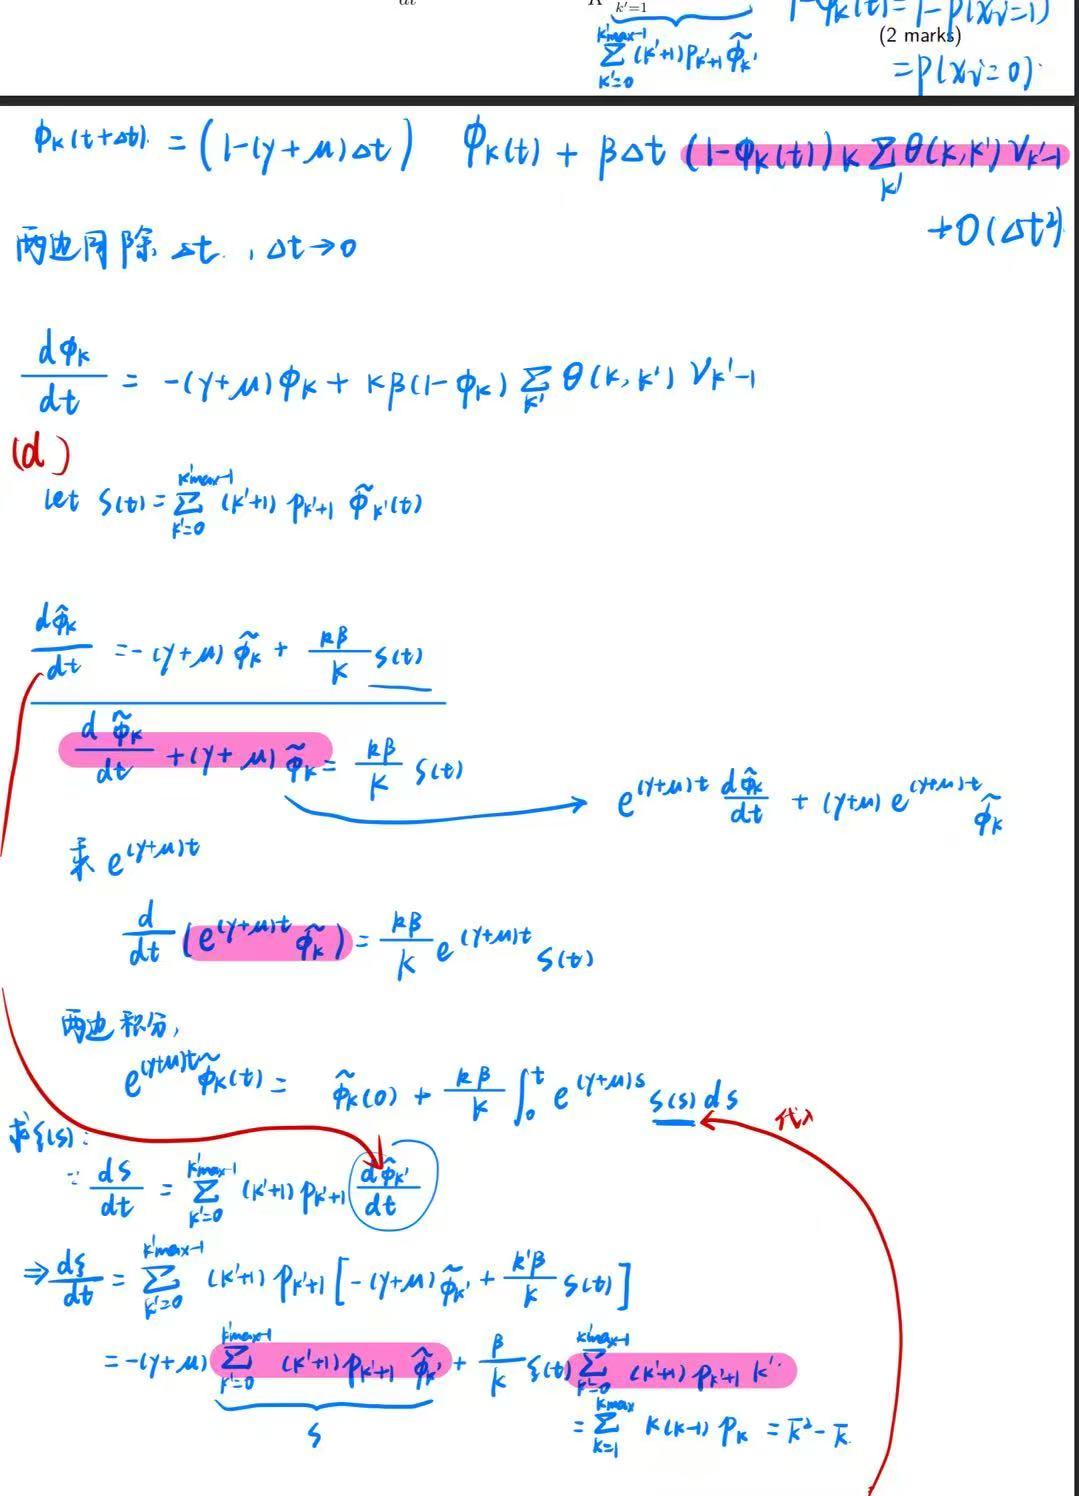 dt K k'=1
k'max-1
∑ (k'+1) p_{k'+1} φ̃_{k'}
k'=0
1-φ_k(t) = 1-P(x_i=1)
(2 marks)
= P(x_i=0).
φ_k(t+Δt). = (1-(γ+μ)Δt) φ_k(t) + βΔt (1-φ_k(t)) k ∑_{k'} θ(k,k') ν_{k'-1}
+O(Δt²)
两边同除 Δt. , Δt→0
dφ_k/dt = -(γ+μ)φ_k + kβ(1-φ_k) ∑_{k'} θ(k,k') ν_{k'-1}
(d)
let S(t) = ∑_{k'=0}^{k'max-1} (k'+1) p_{k'+1} φ̃_{k'}(t)
dφ̃_k/dt = -(γ+μ) φ̃_k + kβ/K S(t)
dφ̃_k/dt + (γ+μ) φ̃_k = kβ/K S(t)
e^{(γ+μ)t} dφ̃_k/dt + (γ+μ) e^{(γ+μ)t} φ̃_k
乘 e^{(γ+μ)t}
d/dt (e^{(γ+μ)t} φ̃_k) = kβ/K e^{(γ+μ)t} S(t)
两边积分,
e^{(γ+μ)t} φ̃_k(t) = φ̃_k(0) + kβ/K ∫_0^t e^{(γ+μ)s} S(s) ds
代入
求S(s):
∵ dS/dt = ∑_{k'=0}^{k'max-1} (k'+1) p_{k'+1} dφ̃_{k'}/dt
⇒ dS/dt = ∑_{k'=0}^{k'max-1} (k'+1) p_{k'+1} [-(γ+μ) φ̃_{k'} + k'β/K S(t)]
= -(γ+μ) ∑_{k'=0}^{k'max-1} (k'+1) p_{k'+1} φ̃_{k'} + β/K S(t) ∑_{k'=0}^{k'max-1} (k'+1) p_{k'+1} k'
S
= ∑_{k=1}^{kmax} k(k-1) p_k = k̄² - k̄